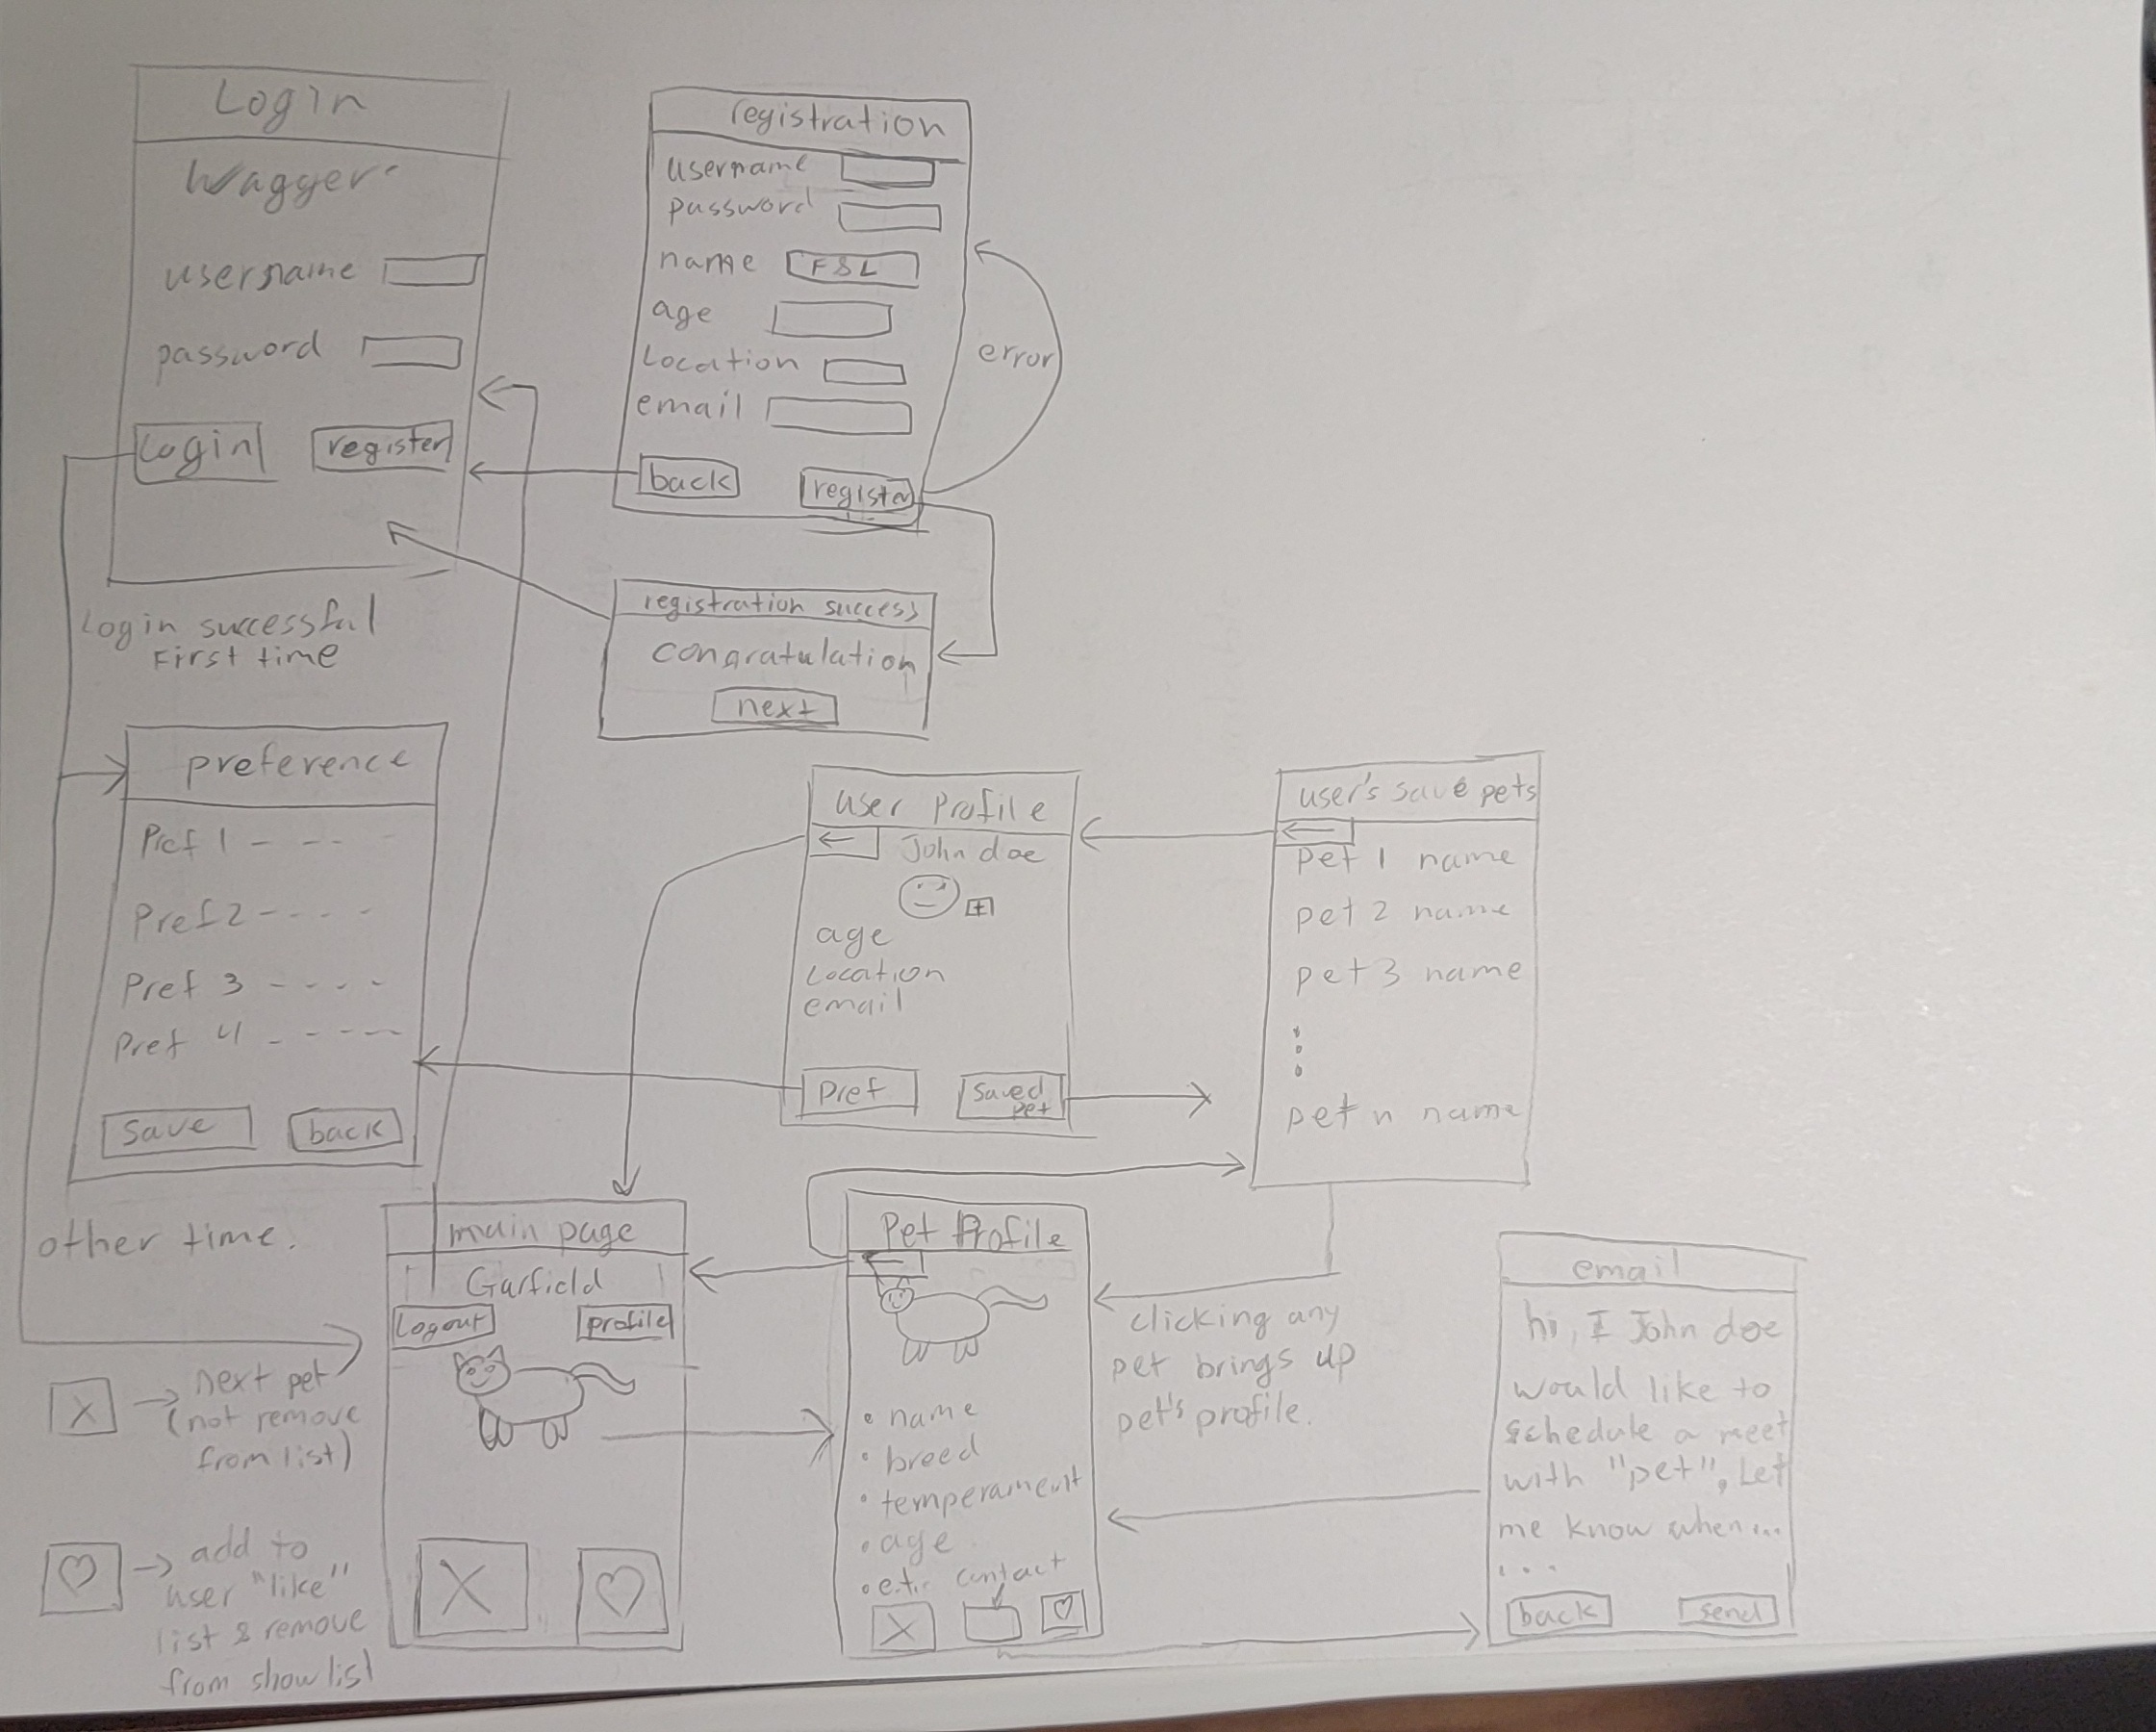 Login
Wagger
username
password
Login register
Login successful
First time
registration
username
password
name F&L
age
Location
email
back register
error
registration success
congratulation
next
preference
Pref 1 - - - -
Pref 2 - - - -
Pref 3 - - - -
Pref 4 - - - -
Save back
other time.
user Profile
← John doe
age
Location
email
Pref Saved pet
user's save pets
←
pet 1 name
pet 2 name
pet 3 name
pet n name
main page
Garfield
Logout profile
X ♡
X → next pet
(not remove
from list)
♡ → add to
user "like"
list & remove
from show list
Pet Profile
←
• name
• breed
• temperament
• age
• etc. contact
X ♡
clicking any
pet brings up
pet's profile.
email
hi, I John doe
would like to
schedule a meet
with "pet", Let
me know when...
...
back send